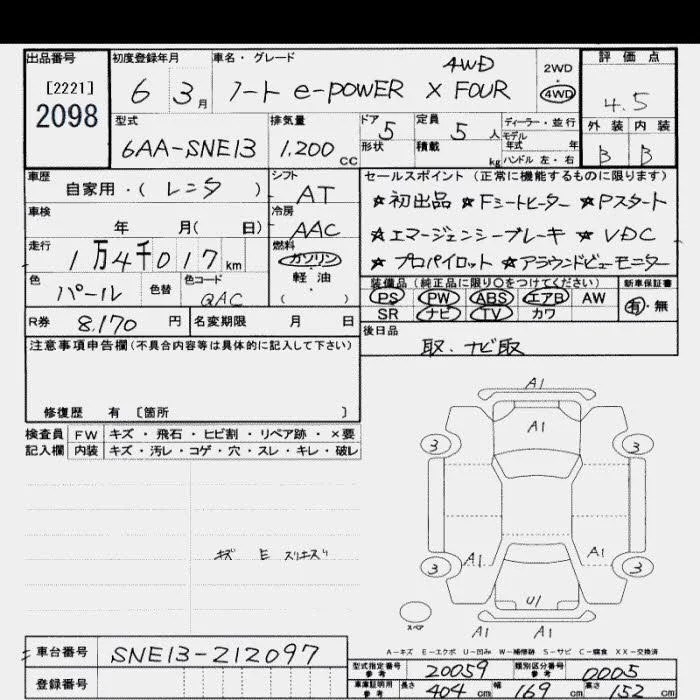 出品番号
[2221]
2098
初度登録年月
6 3月
車名・グレード
ノート e-POWER X FOUR 4WD
2WD
・
4WD
評価点
4.5
外装 内装
B B
型式
6AA-SNE13
排気量
1,200 CC
ドア 5
形状
定員 5 人
積載 kg
ディーラー・並行
モデル
年式 年
ハンドル 左・右
車歴
自家用・( レンタ )
シフト
AT
車検
年 月( 日)
冷房
AAC
走行
1万4千017 km
燃料
ガソリン
軽油
( )
色
パール
色替
色コード
QAC
R券 8,170 円
名変期限 月 日
セールスポイント (正常に機能するものに限ります)
★初出品 ★Fシートヒーター ★Pスタート
★エマージェンシーブレーキ ★VDC
★プロパイロット ★アラウンドビューモニター
装備品 (純正品に限り○をつけてください)
PS PW ABS エアB AW
SR ナビ TV カワ
新車保証書
有・無
後日品
取.ナビ取
注意事項申告欄(不具合内容等は具体的に記入して下さい)
修復歴 有 [箇所 ]
検査員
記入欄
FW キズ・飛石・ヒビ割・リペア跡・×要
内装 キズ・汚レ・コゲ・穴・スレ・キレ・破レ
キズ E スリキズリ
A1
A1
3 3
A1 A1
3 3
U1
A1
スペア
A-キズ E-エクボ U-凹み W-補修跡 S-サビ C-腐食 XX-交換済
車台番号 SNE13-212097
登録番号
型式指定番号
参考
20059
類別区分番号
参考
0005
車庫証明用
参考
長さ 404 cm 幅 169 cm 高さ 152 cm